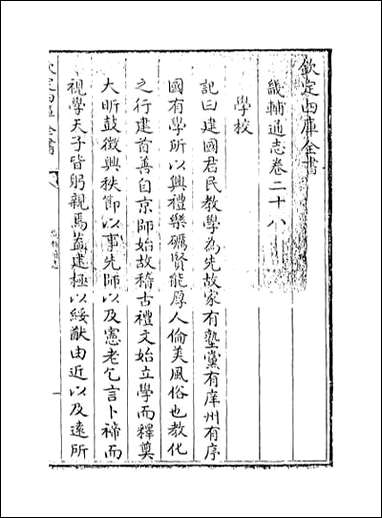 欽定四庫全書
畿輔通志卷二十八
學校
記曰建國君民教學為先故家有塾黨有庠州有序
國有學所以興禮樂礪賢能厚人倫美風俗也教化
之行建首善自京師始故稽古禮文始立學而釋奠
大昕鼓徵興秩節以事先師以及憲老乞言卜禘而
視學天子皆躬親焉蓋建極以綏猷由近以及遠所
欽定四庫全書